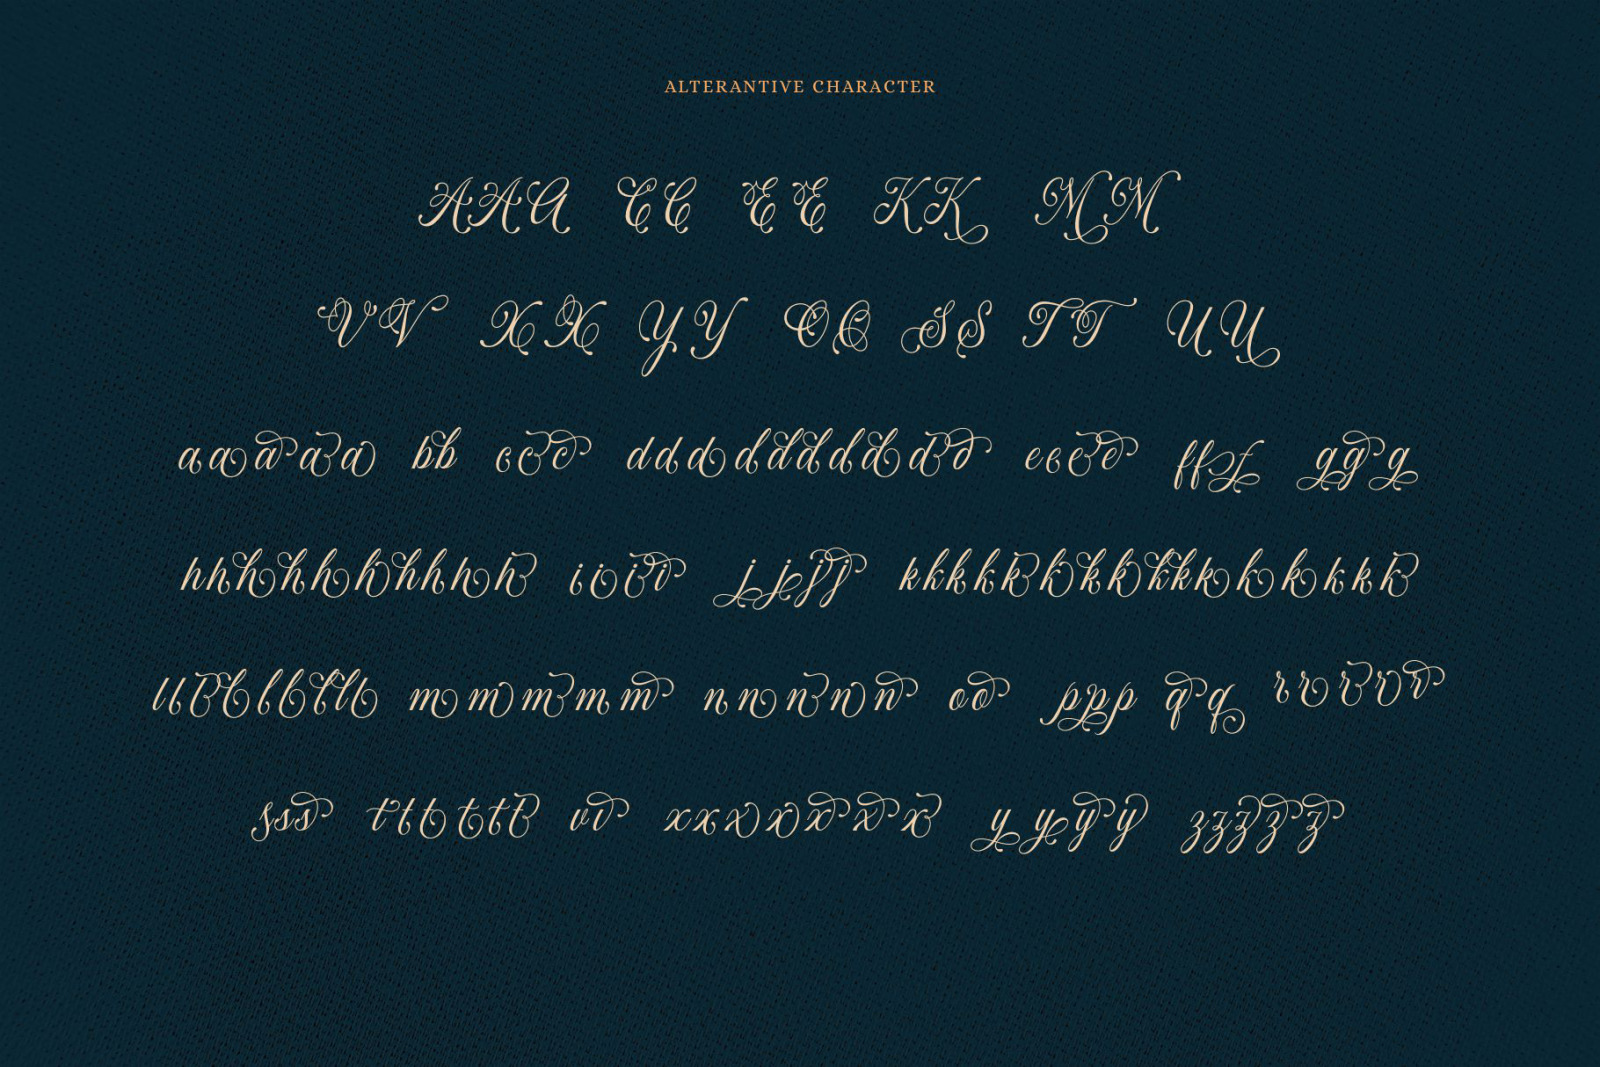 ALTERANTIVE CHARACTER
AAA CC EE KK MM
VV XX YY OO SS TT UU
aaaaa bb ccc dddddddddd eeee fff ggg
hhhhhhhhhh iiii jjjj kkkkkkkkkkkkkkk
lllllllll mmmmm nnnnn oo ppp qq rrrrr
sss tttttt vv xxxxxxx yyyy zzzzz